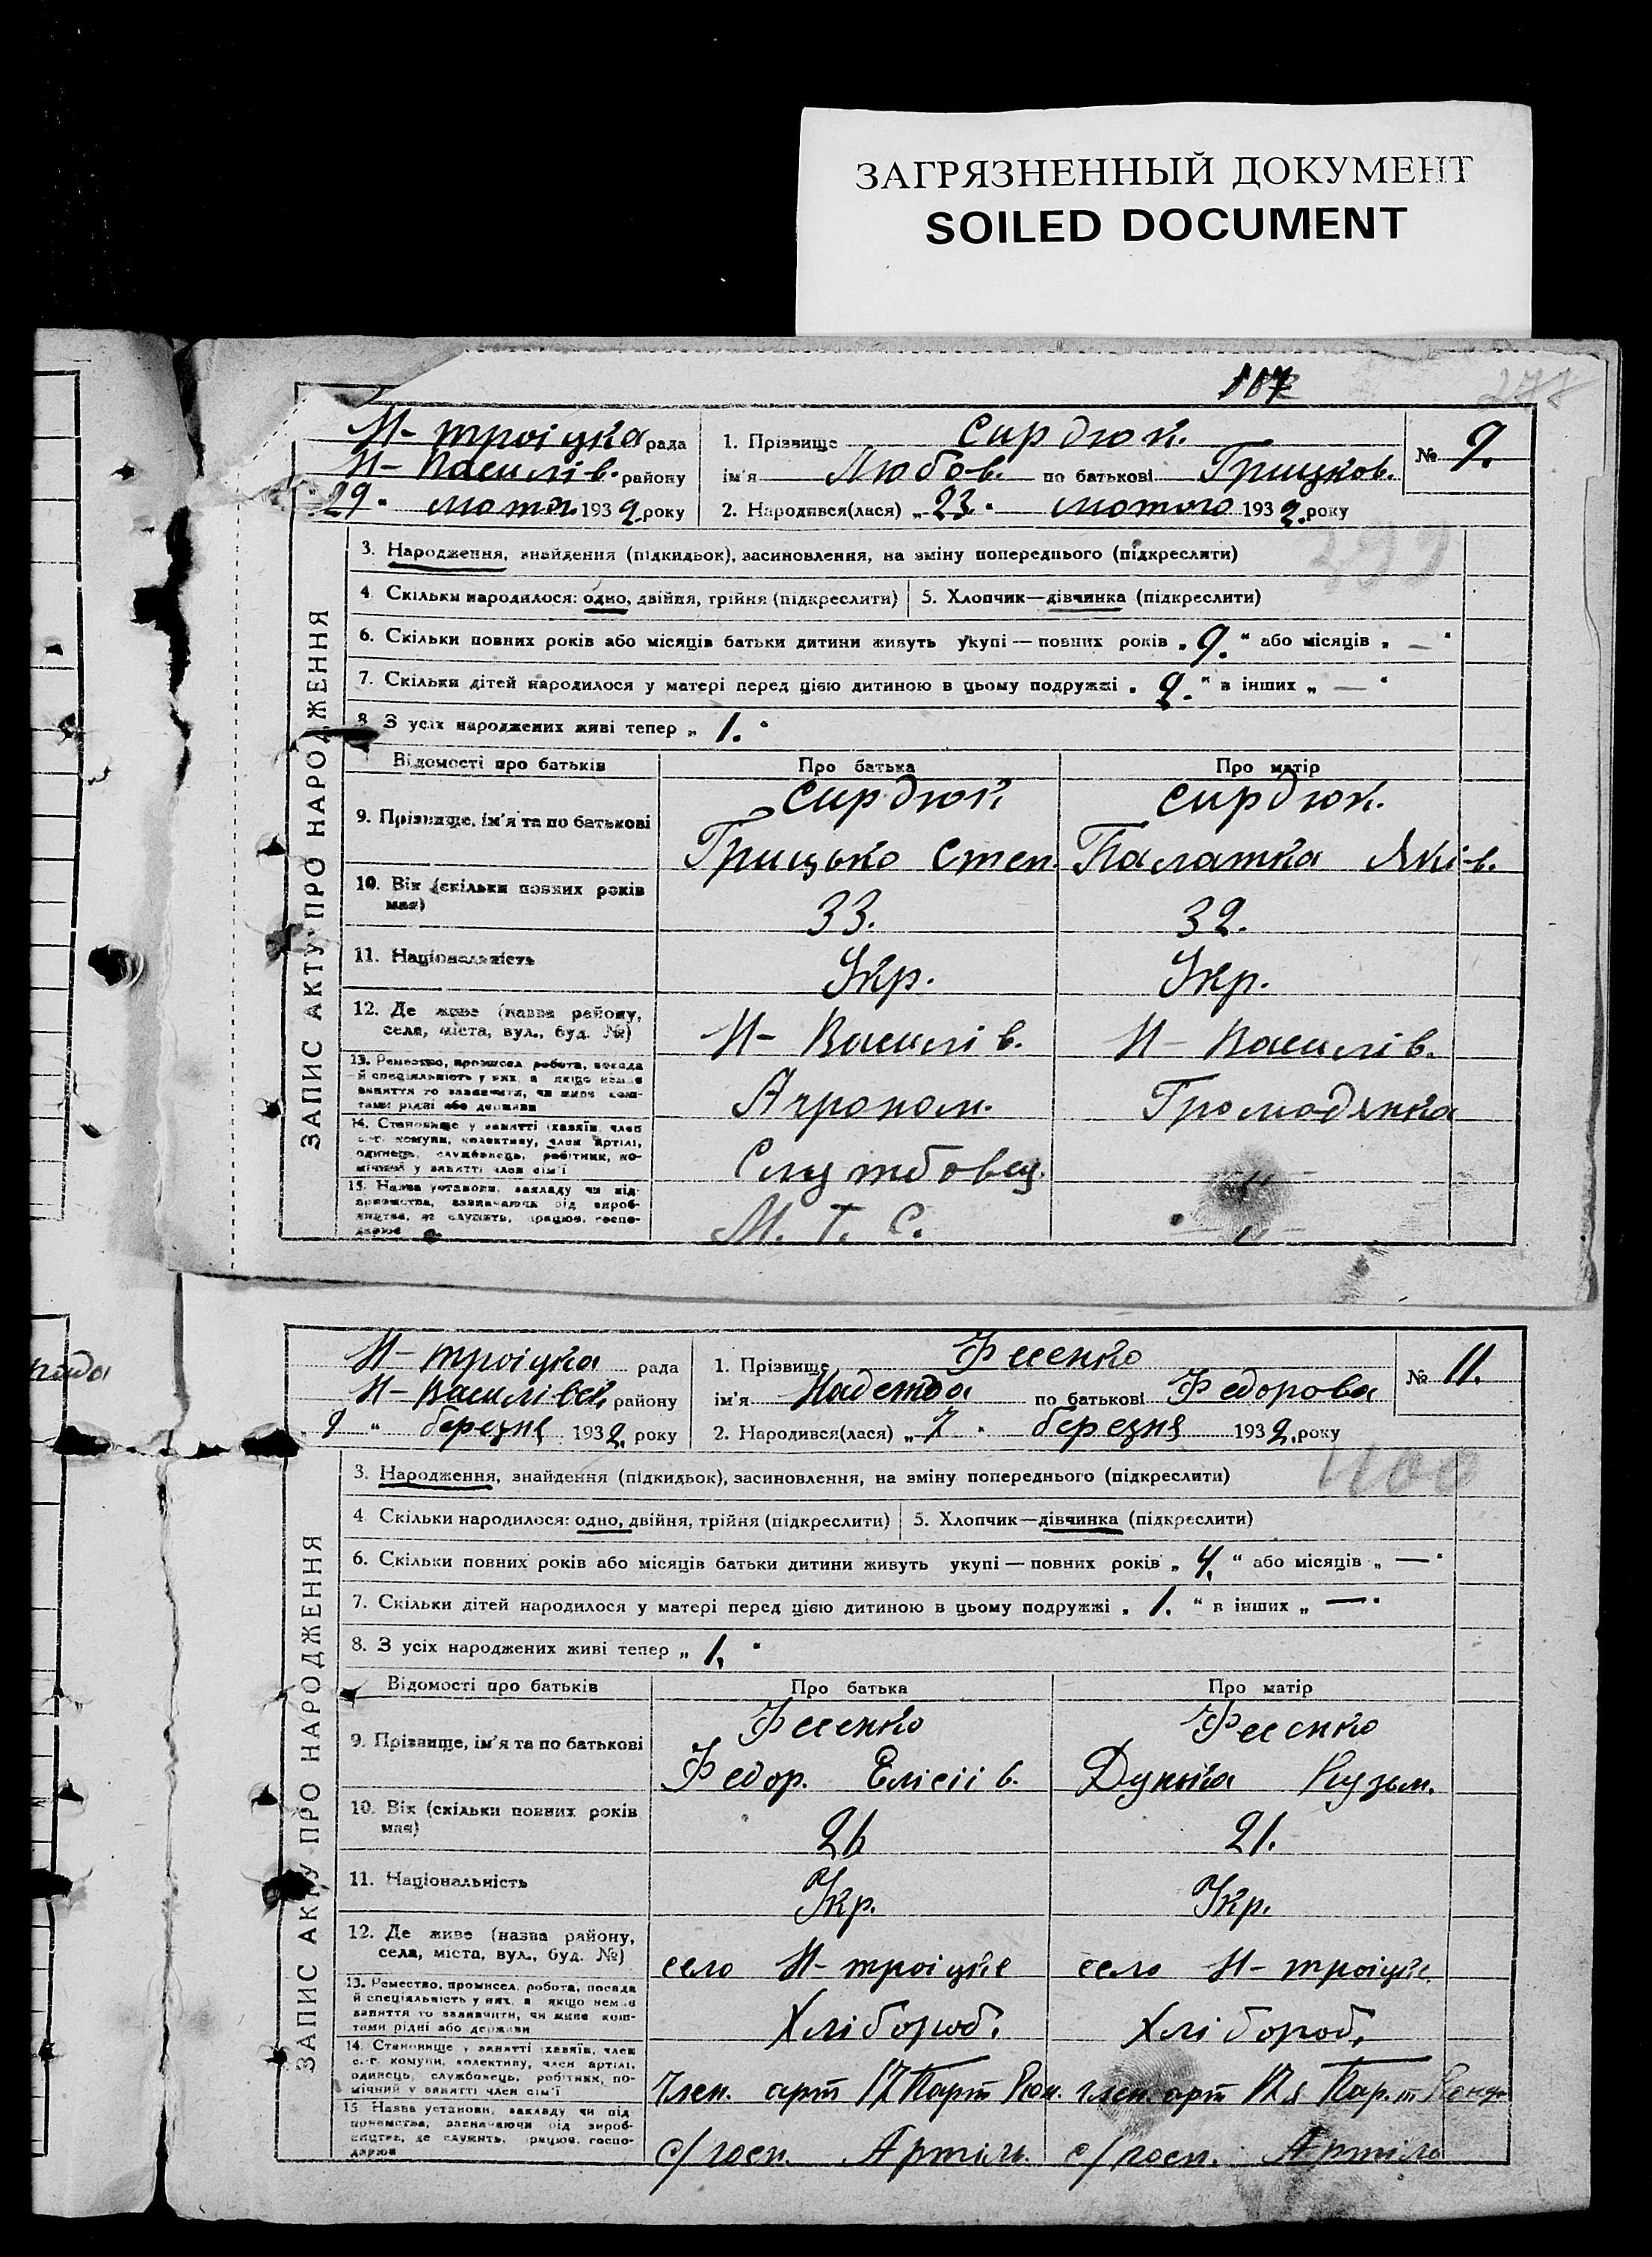 ЗАГРЯЗНЕННЫЙ ДОКУМЕНТ
SOILED DOCUMENT
ЗАПИС АКТУ ПРО НАРОДЖЕННЯ
Н-троіцка рада
Н-Василів. району
"29" лютого 1932 року
1. Прізвище Сирдюк.
ім'я Любов. по батькові Грицков.
2. Народився(лася) "23" лютого 1932 року
№ 9.
3. Народження, знайдення (підкидьок), засиновлення, на зміну попереднього (підкреслити)
4. Скільки народилося: одно, двійня, трійня (підкреслити) 5. Хлопчик—дівчинка (підкреслити)
6. Скільки повних років або місяців батьки дитини живуть укупі — повних років „9." або місяців „—"
7. Скільки дітей народилося у матері перед цією дитиною в цьому подружжі „2." в інших „—"
8. З усіх народжених живі тепер „1."
Відомості про батьків Про батька Про матір
9. Прізвище, ім'я та по батькові
Сирдюк Сирдюк.
Грицько Степ. Палажка Яків.
10. Вік (скільки повних років має) 33. 32.
11. Національність Укр. Укр.
12. Де живе (назва району, села, міста, вул., буд. №) Н-Василів. Н-Василів.
13. Ремество, промисел, робота, посада й спеціяльність у них, а якщо немає заняття то зазначити, чи живе коштами рідні або держави
Агроном. Громадянка
14. Становище у занятті (хазяїн, член с.-г. комуни, колективу, член артілі, одинець, службовець, робітник, помічний у занятті член сім'ї
Службовец. — " —
15. Назва установи, закладу чи підприємства, зазначаючи рід виробництва, де служить, працює, господарює
М. Т. С. — " —
рада
ЗАПИС АКТУ ПРО НАРОДЖЕННЯ
Н-троіцка рада
Н-Василівс. району
9 " березня 1932. року
1. Прізвище Фесенко
ім'я Надежда по батькові Федорова
2. Народився(лася) „7" березня 1932. року
№ 11.
400
3. Народження, знайдення (підкидьок), засиновлення, на зміну попереднього (підкреслити)
4 Скільки народилося: одно, двійня, трійня (підкреслити) 5. Хлопчик—дівчинка (підкреслити)
6. Скільки повних років або місяців батьки дитини живуть укупі — повних років „4." або місяців „—"
7. Скільки дітей народилося у матері перед цією дитиною в цьому подружжі „1." в інших „—"
8. З усіх народжених живі тепер „1."
Відомості про батьків Про батька Про матір
9. Прізвище, ім'я та по батькові
Фесенко Фесенко
Федор. Елісіів. Дунька Кузьм.
10. Вік (скільки повних років має) 26 21.
11. Національність Укр. Укр.
12. Де живе (назва району, села, міста, вул., буд. №) село Н-троіцке село Н-троіцке
13. Ремество, промисел, робота, посада й спеціяльність у них, а якщо немає заняття то зазначити, чи живе коштами рідні або держави
Хлібороб. Хлібороб.
14. Становище у занятті (хазяїн, член с.-г. комуни, колективу, член артілі, одинець, службовець, робітник, помічний у занятті член сім'ї
Член. арт 17 Парт член арт
15. Назва установи, закладу чи підприємства, зазначаючи рід виробництва, де служить, працює, господарює
с/госп. Артіль. с/госп. Артіль